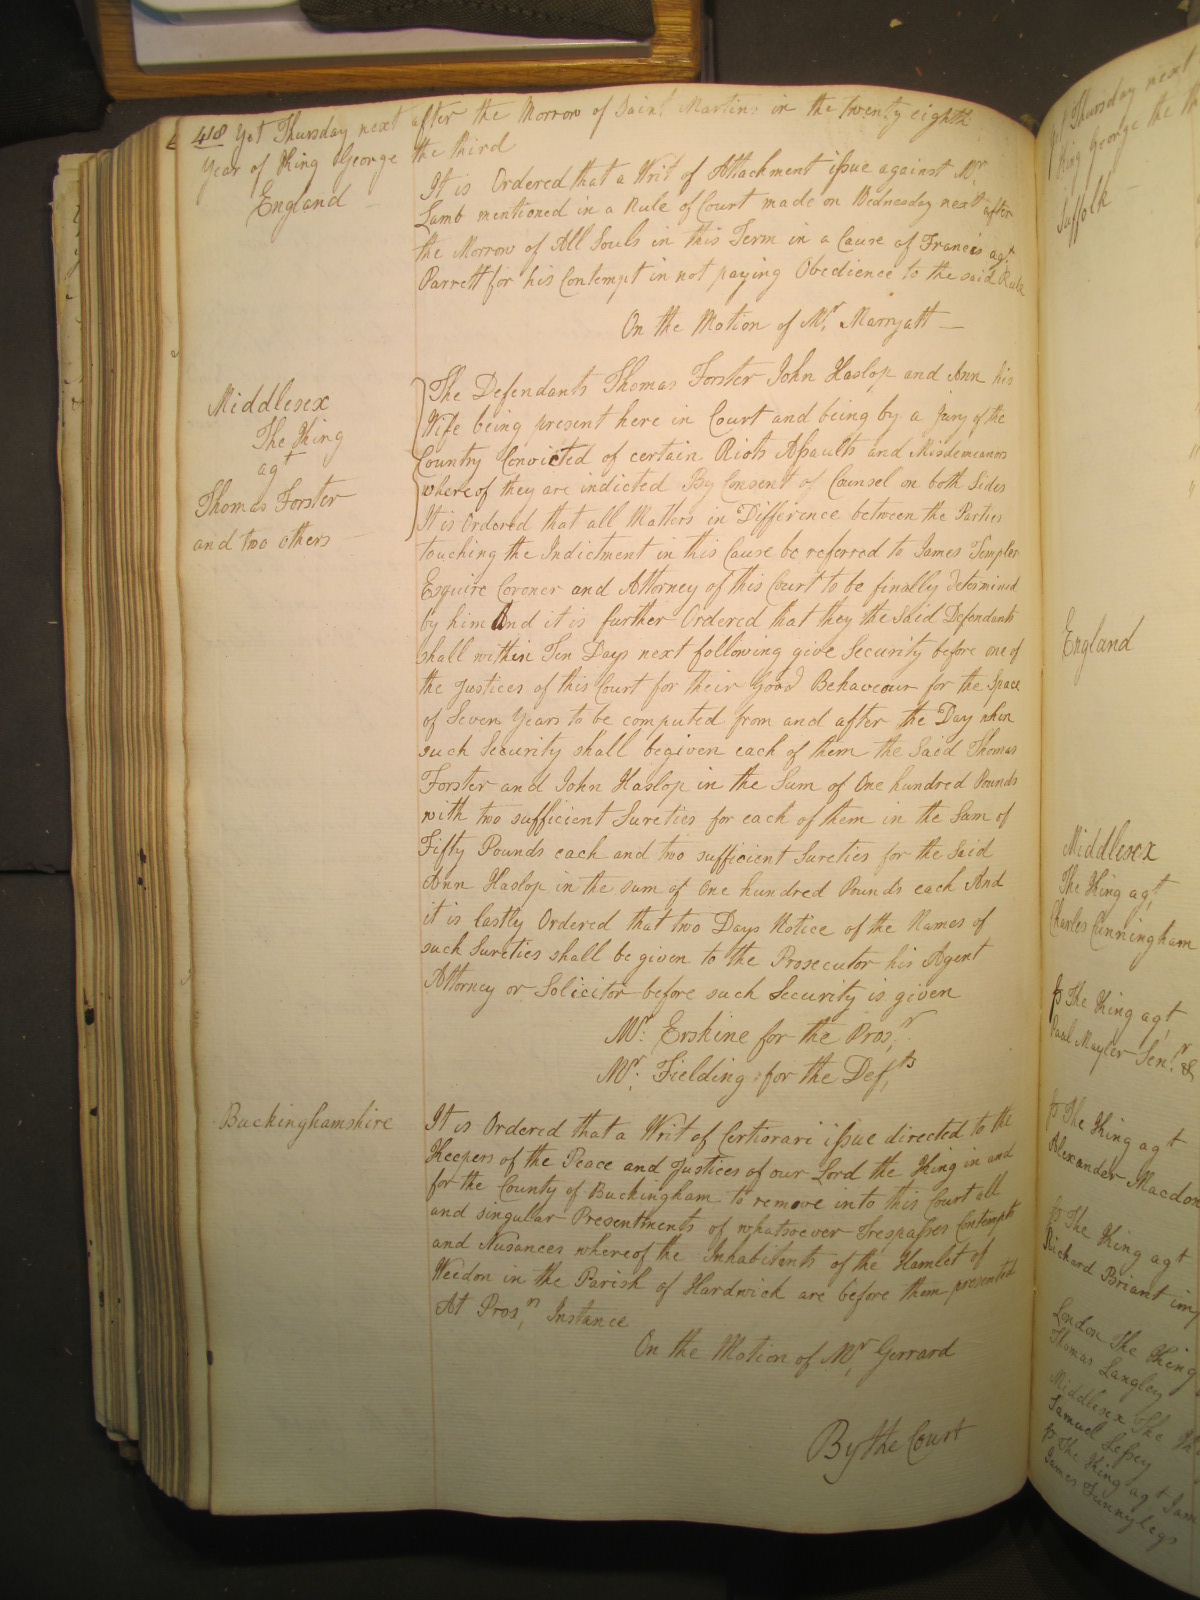 418 Yet Thursday next after the Morrow of Saint Martins in the twenty eighth
Year of King George the third
England
It is Ordered that a Writ of Attachment issue against Mr.
Lamb mentioned in a Rule of Court made on Wednesday next after
the Morrow of All Souls in this Term in a Cause of Francis agt.
Parrett for his Contempt in not paying Obedience to the said Rule
On the Motion of Mr. Marryatt
Middlesex
The King
agt
Thomas Forster
and two others
The Defendants Thomas Forster John Haslop and Ann his
Wife being present here in Court and being by a Jury of the
Country Convicted of certain Riots Assaults and Misdemeanors
whereof they are indicted By Consent of Counsel on both Sides
It is Ordered that all Matters in Difference between the Parties
touching the Indictment in this Cause be referred to James Templer
Esquire Coroner and Attorney of this Court to be finally determined
by him And it is further Ordered that they the Said Defendants
shall within Ten Days next following give Security before one of
the Justices of this Court for their Good Behaveour for the Space
of Seven Years to be computed from and after the Day when
such Security shall begiven each of them the Said Thomas
Forster and John Haslop in the Sum of One hundred Pounds
with two sufficient Sureties for each of them in the Sum of
Fifty Pounds each and two sufficient Sureties for the Said
Ann Haslop in the sum of One hundred Pounds each And
it is lastly Ordered that two Days Notice of the Names of
such Sureties shall be given to the Prosecutor his Agent
Attorney or Solicitor before such Security is given
Mr. Erskine for the Prosr.
Mr. Fielding for the Defts
Buckinghamshire
It is Ordered that a Writ of Certiorari issue directed to the
Keepers of the Peace and Justices of our Lord the King in and
for the County of Buckingham to remove into this Court all
and singular Presentments of whatsoever Trespasses Contempts
and Nusances whereof the Inhabitants of the Hamlet of
Weedon in the Parish of Hardwick are before them presented
At Prosrs Instance
On the Motion of Mr. Gerrard
By the Court
Yet Thursday next
King George the th
Suffolk
England
Middlesex
The King agt
Charles Cunningham
The King agt
Paul Mayler Senr. &
The King agt
Alexander Macdon
The King agt
Richard Briant
London The King
Thomas Langley
Middlesex The
Samuel
The King agt
James Funnylegs